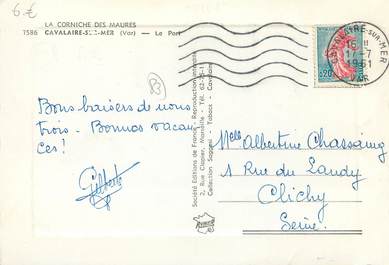 6€
LA CORNICHE DES MAURES
1586 CAVALAIRE-SUR-MER (Var) — Le Port
B
CAVALAIRE-SUR-MER
16 H
17-7
1961
VAR
0,20
Bons baisers de nous
trois. Bonnes vacan-
ces!
Gilberte
Société Éditions de France - Reproduction interdite
2, Rue Clapier, Marseille - Tél. 62-
Collection Tabacs - Cavalaire
Melle Albertine Chassaing
1 Rue du Landy
Clichy
Seine.